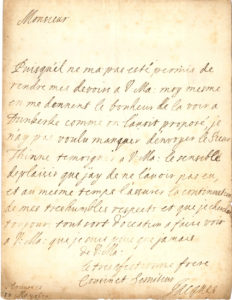 Monsieur
Puisquil ne ma pas esté permis de
rendre mes devoirs a V Ma: moy mesme
en me donnent le bonheur de la voir a
comme on lauoit proposé, je
nay pas voulu manquer denvoyer le Sieur
temoigner a V Ma: le sensible
deplaisir que jay de ne lauoir pas eu
et au mesme temps lassurer la continuation
de mes treshumbles respects et que je
toujour tout
a V Ma: que je suis plus que jamais
de V Ma:
le tres frere
Cousin et Serviteur